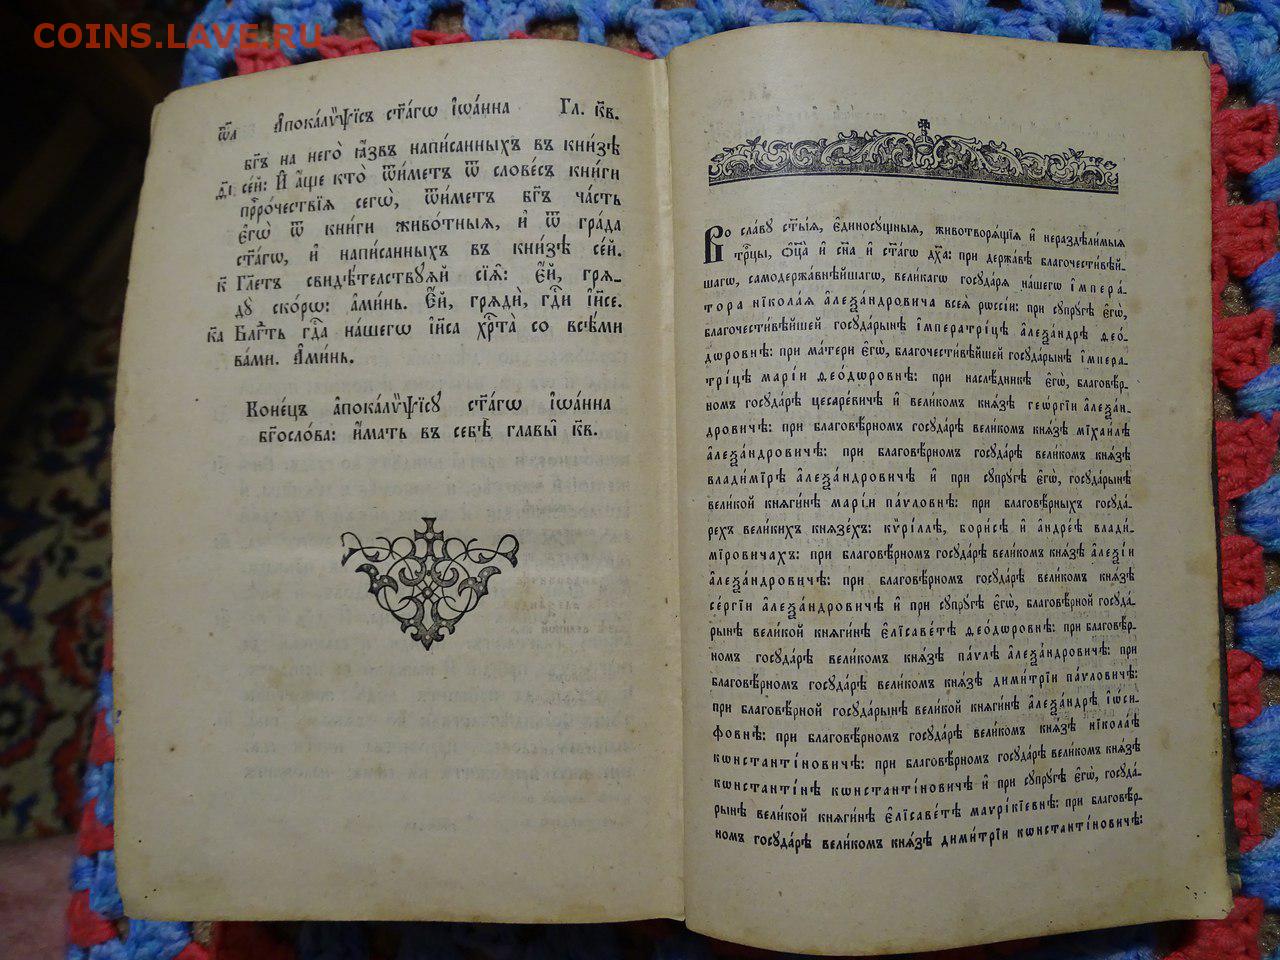 COINS.LAVE.RU
А҆пока́лѷѱїсъ ст҃а́гѡ і҆ѡа́нна Гл. к҃в.
бг҃ъ на него̀ ꙗ҆́звъ напи́санныхъ въ кни́зѣ
се́й: И҆ а҆́ще кто̀ ѿи́метъ ѿ слове́съ кни́ги
прⷪ҇ро́чествїѧ сегѡ̀, ѿи́метъ бг҃ъ ча́сть
є҆гѡ̀ ѿ кни́ги живо́тныѧ, и҆ ѿ гра́да
ст҃а́гѡ, и҆ напи́санныхъ въ кни́зѣ се́й.
к҃ Гл҃етъ свидѣ́тельствꙋѧй сїѧ̑: є҆́й, грѧ-
дꙋ̀ ско́рѡ: а҆ми́нь. Є҆́й, грѧдѝ, гдⷭ҇и і҆и҃се.
к҃а Блгⷣть гдⷭ҇а на́шегѡ і҆и҃са хрⷭ҇та̀ со всѣ́ми
ва́ми. А҆ми́нь.
Коне́цъ а҆пока́лѷѱїсꙋ ст҃а́гѡ і҆ѡа́нна
бг҃осло́ва: и҆́мать въ себѣ̀ главы̑ к҃в.
Во сла́вꙋ ст҃ы́ѧ, є҆диносꙋ́щныѧ, животворѧ́щїѧ и҆ нераздѣ́лимыѧ
трⷪ҇цы, ѻ҆ц҃а̀ и҆ сн҃а и҆ ст҃а́гѡ дх҃а: при держа́вѣ благочести́вѣй-
шагѡ, самодержа́внѣйшагѡ, вели́кагѡ госꙋдарѧ̀ на́шегѡ і҆мпера́-
тора нїкола́ѧ а҆леѯа́ндровича всеѧ̀ рѡссі́и: при сꙋпрꙋ́гѣ є҆гѡ̀,
благочести́вѣйшей госꙋда́рынѣ і҆мператрі́цѣ а҆леѯа́ндрѣ ѳео́-
дѡровнѣ: при ма́тери є҆гѡ̀, благочести́вѣйшей госꙋда́рынѣ і҆мпера-
трі́цѣ марі́и ѳео́дѡровнѣ: при наслѣ́дникѣ є҆гѡ̀, благовѣ́р-
номъ госꙋда́рѣ цесаре́вичѣ и҆ вели́комъ кнѧ́зѣ геѡ́ргїи а҆леѯа́н-
дровичѣ: при благовѣ́рномъ госꙋда́рѣ вели́комъ кнѧ́зѣ мїхаи́лѣ
а҆леѯа́ндровичѣ: при благовѣ́рномъ госꙋда́рѣ вели́комъ кнѧ́зѣ
влади́мїрѣ а҆леѯа́ндровичѣ и҆ при сꙋпрꙋ́гѣ є҆гѡ̀, госꙋда́рынѣ
вели́кой кнѧги́нѣ марі́и па́ѵловнѣ: при благовѣ́рныхъ госꙋда́-
рехъ вели́кихъ кнѧзе́хъ: кѷрі́ллѣ, бори́сѣ и҆ а҆ндре́ѣ влади́-
мїровичахъ: при благовѣ́рномъ госꙋда́рѣ вели́комъ кнѧ́зѣ а҆леѯі́и
а҆леѯа́ндровичѣ: при благовѣ́рномъ госꙋда́рѣ вели́комъ кнѧ́зѣ
се́ргїи а҆леѯа́ндровичѣ и҆ при сꙋпрꙋ́гѣ є҆гѡ̀, благовѣ́рной госꙋда́-
рынѣ вели́кой кнѧги́нѣ є҆лїсаве́тѣ ѳео́дѡровнѣ: при благовѣ́р-
номъ госꙋда́рѣ вели́комъ кнѧ́зѣ па́ѵлѣ а҆леѯа́ндровичѣ: при
благовѣ́рномъ госꙋда́рѣ вели́комъ кнѧ́зѣ дими́трїи па́ѵловичѣ:
при благовѣ́рной госꙋда́рынѣ вели́кой кнѧги́нѣ а҆леѯа́ндрѣ і҆ѡ́си-
фовнѣ: при благовѣ́рномъ госꙋда́рѣ вели́комъ кнѧ́зѣ нїкола́ѣ
кѡнстанті́новичѣ: при благовѣ́рномъ госꙋда́рѣ вели́комъ кнѧ́зѣ
кѡнстанті́нѣ кѡнстанті́новичѣ и҆ при сꙋпрꙋ́гѣ є҆гѡ̀, госꙋда́-
рынѣ вели́кой кнѧги́нѣ є҆лїсаве́тѣ маѵрі́кїевнѣ: при благовѣ́р-
номъ госꙋда́рѣ вели́комъ кнѧ́зѣ дими́трїи кѡнстанті́новичѣ: